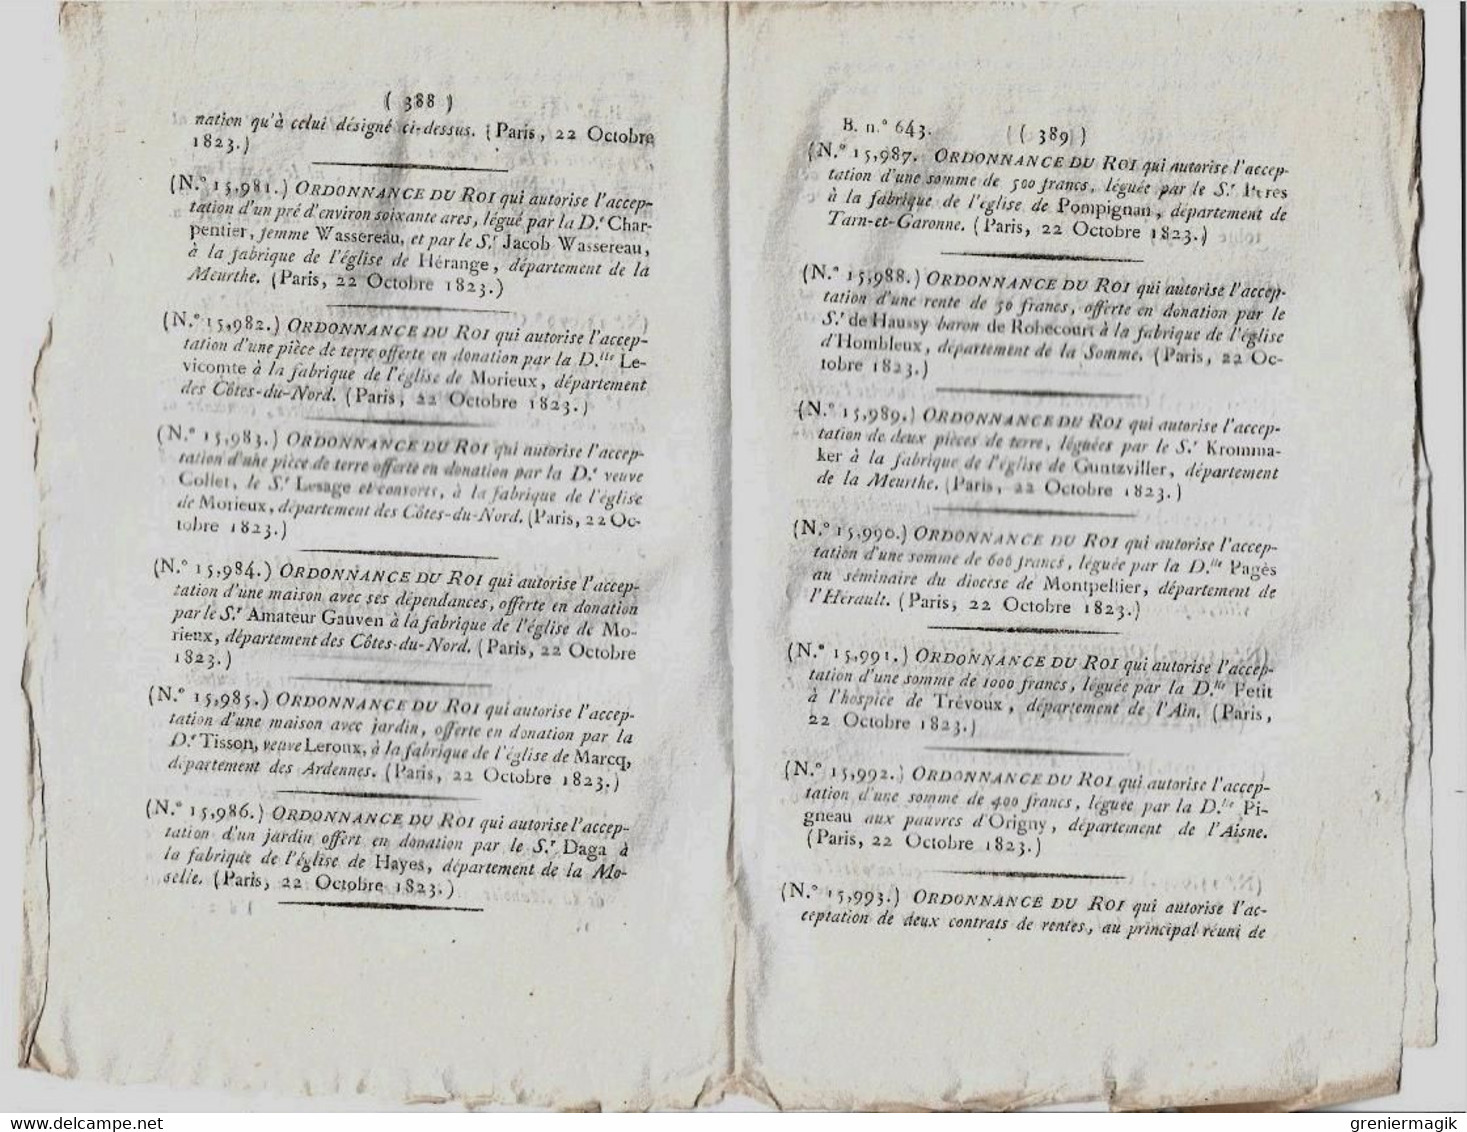 ( 388 )
nation qu'à celui désigné ci-dessus. (Paris, 22 Octobre
1823.)
(N.° 15,981.) ORDONNANCE DU ROI qui autorise l'accep-
tation d'un pré d'environ soixante ares, légué par la D.e Char-
pentier, femme Wassereau, et par le S.r Jacob Wassereau,
à la fabrique de l'église de Hérange, département de la
Meurthe. (Paris, 22 Octobre 1823.)
(N.° 15,982.) ORDONNANCE DU ROI qui autorise l'accep-
tation d'une pièce de terre offerte en donation par la D.lle Le-
vicomte à la fabrique de l'église de Morieux, département
des Côtes-du-Nord. (Paris, 22 Octobre 1823.)
(N.° 15,983.) ORDONNANCE DU ROI qui autorise l'accep-
tation d'une pièce de terre offerte en donation par la D.e veuve
Collet, le S.r Lesage et consorts, à la fabrique de l'église
de Morieux, département des Côtes-du-Nord. (Paris, 22 Oc-
tobre 1823.)
(N.° 15,984.) ORDONNANCE DU ROI qui autorise l'accep-
tation d'une maison avec ses dépendances, offerte en donation
par le S.r Amateur Gauven à la fabrique de l'église de Mo-
rieux, département des Côtes-du-Nord. (Paris, 22 Octobre
1823.)
(N.° 15,985.) ORDONNANCE DU ROI qui autorise l'accep-
tation d'une maison avec jardin, offerte en donation par la
D.e Tisson, veuve Leroux, à la fabrique de l'église de Marcq,
département des Ardennes. (Paris, 22 Octobre 1823.)
(N.° 15,986.) ORDONNANCE DU ROI qui autorise l'accep-
tation d'un jardin offert en donation par le S.r Daga à
la fabrique de l'église de Hayes, département de la Mo-
selle. (Paris, 22 Octobre 1823.)
B. n.° 643. ( 389 )
(N.° 15,987. ORDONNANCE DU ROI qui autorise l'accep-
tation d'une somme de 500 francs, léguée par le S.r Peres
à la fabrique de l'église de Pompignan, département de
Tarn-et-Garonne. (Paris, 22 Octobre 1823.)
(N.° 15,988.) ORDONNANCE DU ROI qui autorise l'accep-
tation d'une rente de 50 francs, offerte en donation par le
S.r de Haussy baron de Robecourt à la fabrique de l'église
d'Hombleux, département de la Somme. (Paris, 22 Oc-
tobre 1823.)
(N.° 15,989.) ORDONNANCE DU ROI qui autorise l'accep-
tation de deux pièces de terre, léguées par le S.r Kromma-
ker à la fabrique de l'église de Guntzviller, département
de la Meurthe. (Paris, 22 Octobre 1823.)
(N.° 15,990.) ORDONNANCE DU ROI qui autorise l'accep-
tation d'une somme de 600 francs, léguée par la D.lle Pagès
au séminaire du diocèse de Montpellier, département de
l'Hérault. (Paris, 22 Octobre 1823.)
(N.° 15,991.) ORDONNANCE DU ROI qui autorise l'accep-
tation d'une somme de 1000 francs, léguée par la D.lle Petit
à l'hospice de Trévoux, département de l'Ain. (Paris,
22 Octobre 1823.)
(N.° 15,992.) ORDONNANCE DU ROI qui autorise l'accep-
tation d'une somme de 400 francs, léguée par la D.lle Pi-
gneau aux pauvres d'Origny, département de l'Aisne.
(Paris, 22 Octobre 1823.)
(N.° 15,993.) ORDONNANCE DU ROI qui autorise l'ac-
ceptation de deux contrats de rentes, au principal réuni de
www.delcampe.net
greniermagik